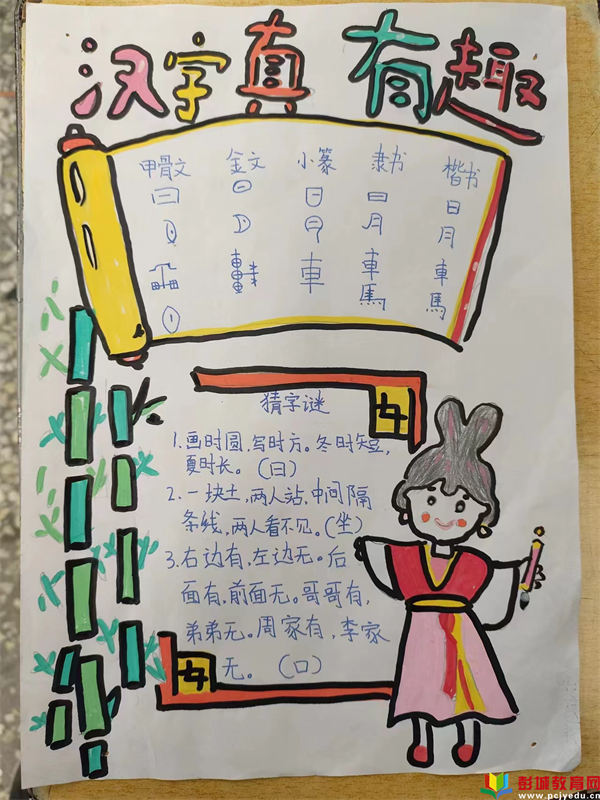 汉字真有趣
甲骨文 金文 小篆 隶书 楷书
日
月 月
車 車 車
馬 馬
猜字谜
1.画时圆,写时方。冬时短,
夏时长。(日)
2.一块土,两人站,中间隔
条线,两人看不见。(坐)
3.右边有,左边无。后
面有,前面无。哥哥有,
弟弟无。周家有,李家
无。(口)
彭城教育网
www.pcjyedu.cn